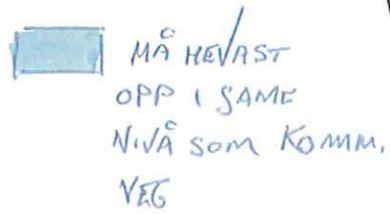 MÅ HEVAST
OPP I SAME
NIVÅ SOM KOMM.
VEG